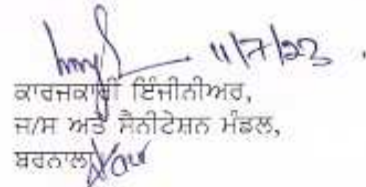 11/7/23
ਕਾਰਜਕਾਰੀ ਇੰਜੀਨੀਅਰ,
ਜ/ਸ ਅਤੇ ਸੈਨੀਟੇਸ਼ਨ ਮੰਡਲ,
ਬਰਨਾਲਾ